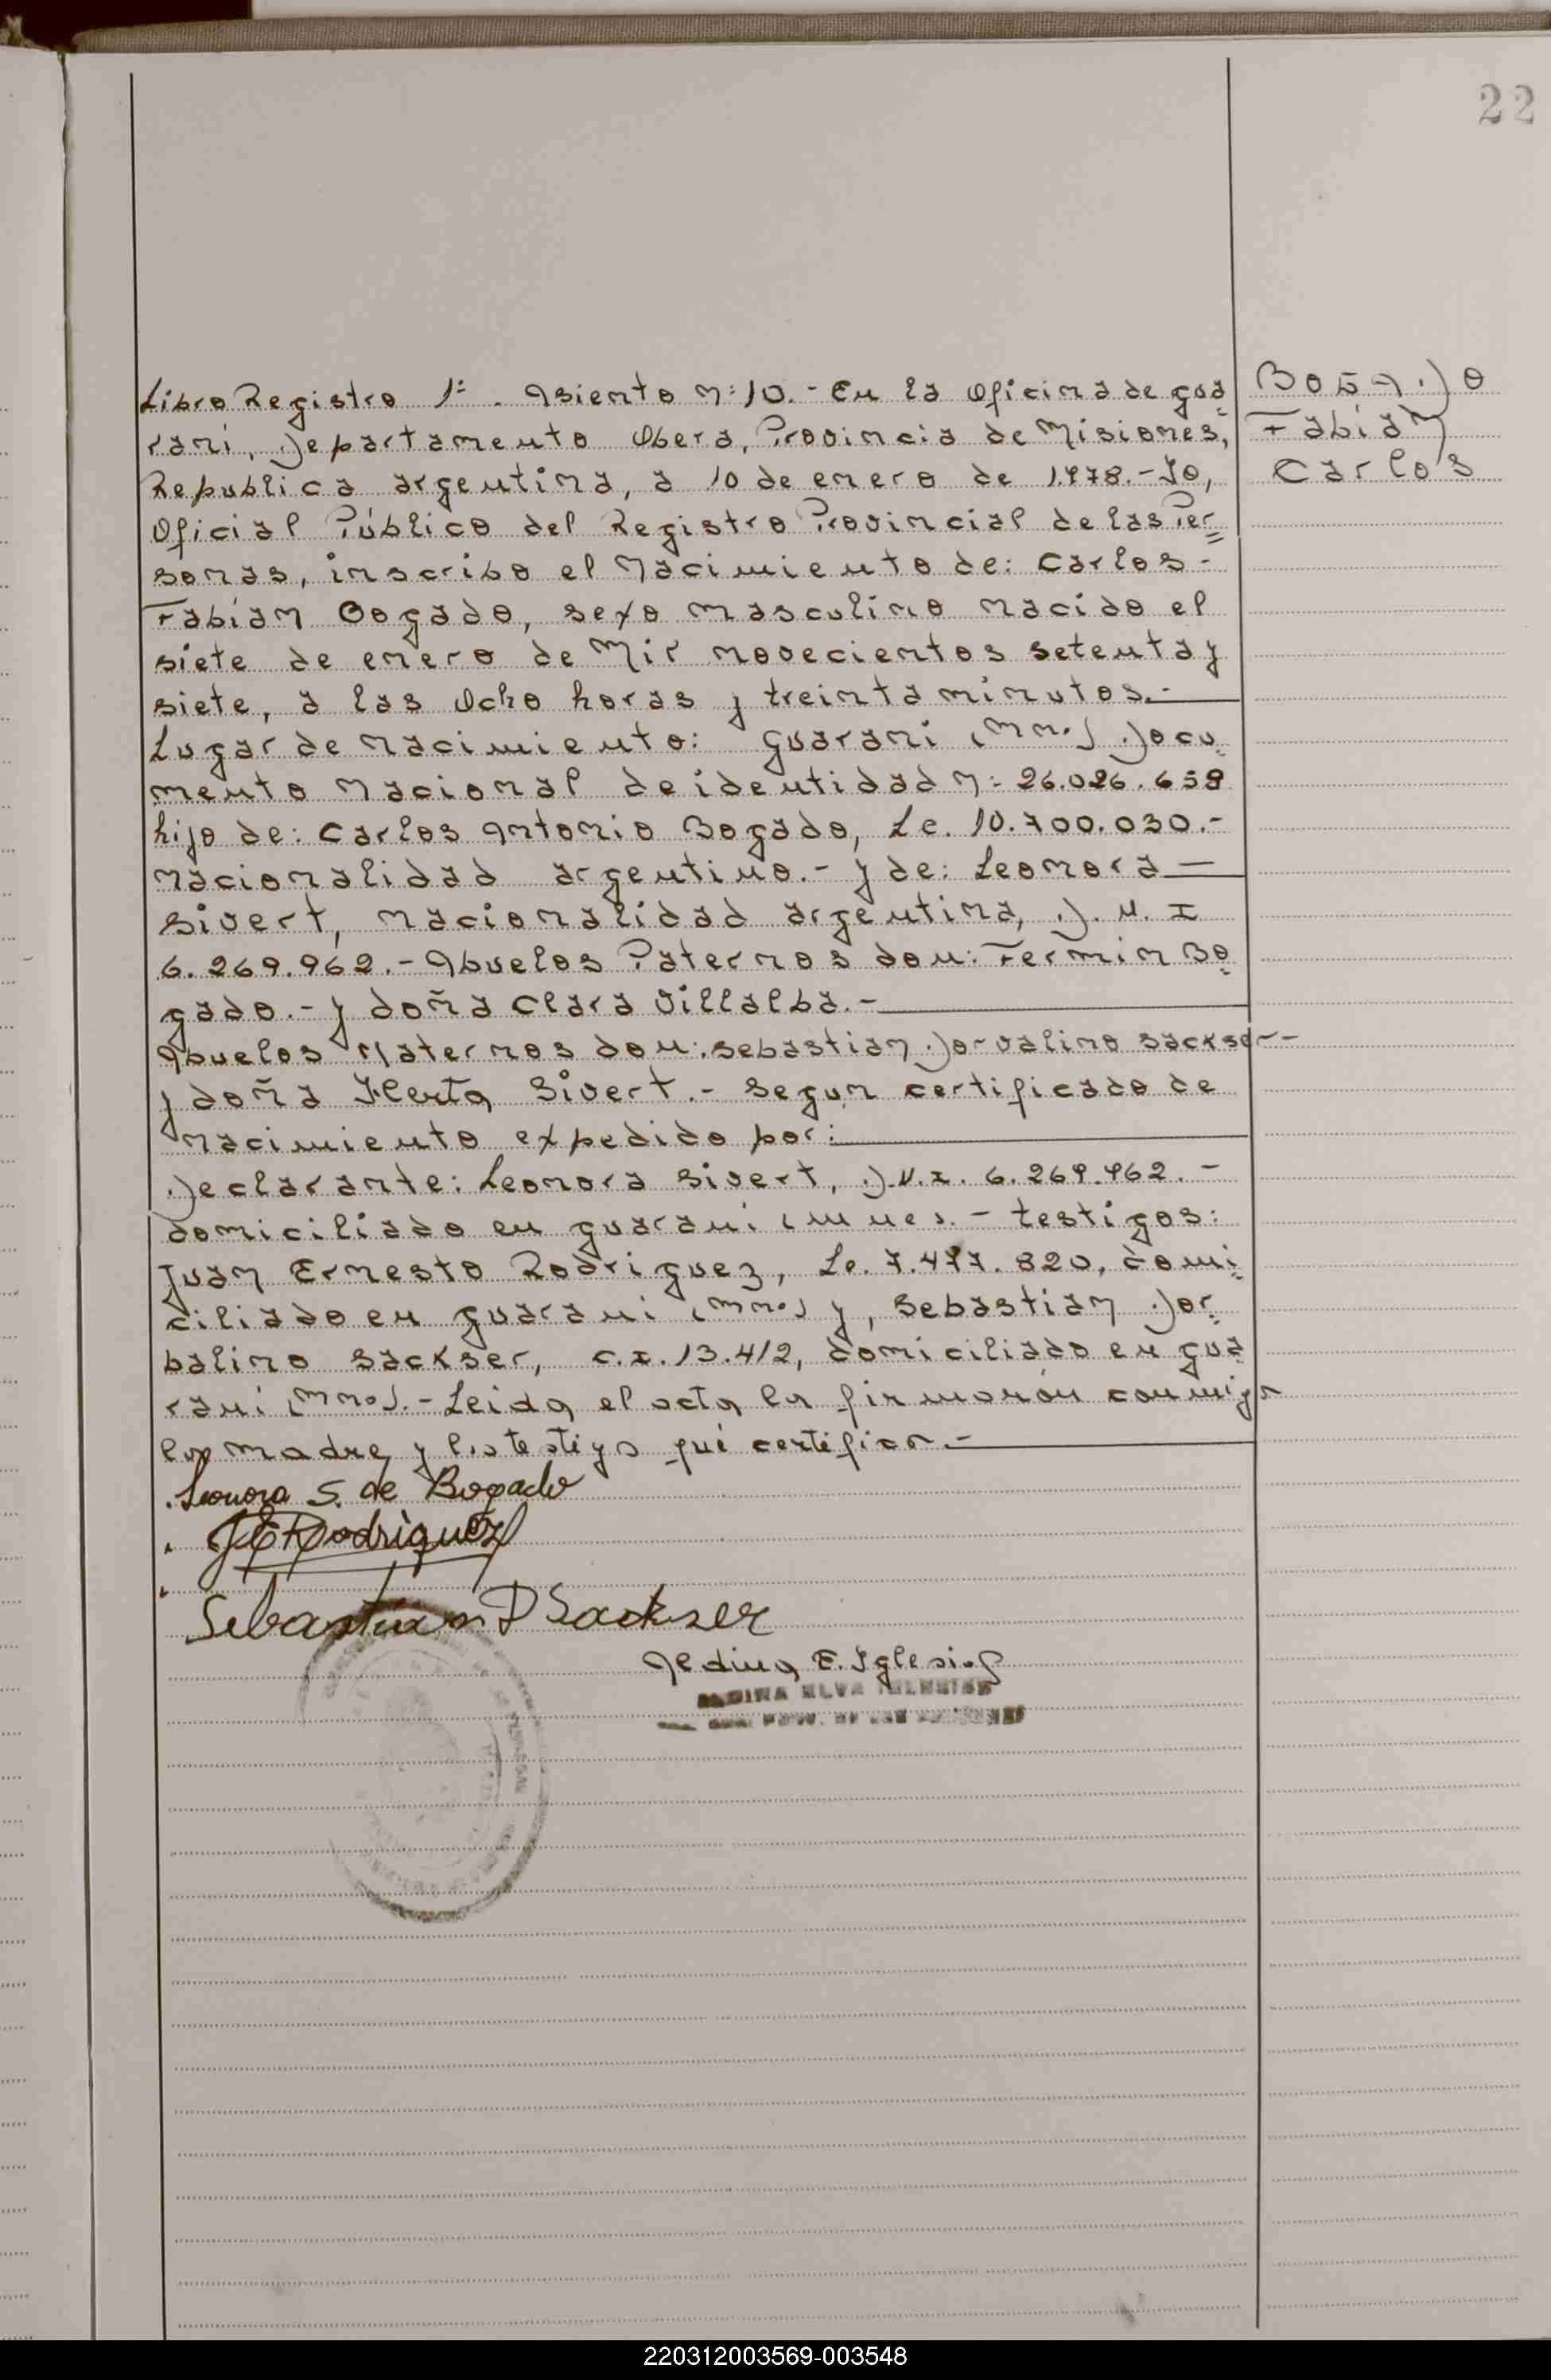 22
Bogado
Fabián
Carlos
Libro Registro 1º. Asiento Nº 10.- En la Oficina de Gua
raní, Departamento Oberá, Provincia de Misiones,
Republica Argentina, a 10 de enero de 1.978.- Yo,
Oficial Público del Registro Provincial de las Per
sonas, inscribo el Nacimiento de: Carlos-
Fabián Bogado, sexo masculino nacido el
siete de enero de Mil novecientos setenta y
siete, a las Ocho horas y treinta minutos.-
Lugar de nacimiento: Guarani (Mnes) Docu
mento Nacional de identidad Nº 26.026.658
hijo de: Carlos Antonio Bogado, Le. 10.700.030.-
Nacionalidad argentino.- y de: Leonora
Sivert, nacionalidad argentina, D.N.I
6.269.962.- Abuelos Paternos don: Fermin Bo
gado.- y doña Clara Villalba.-
Abuelos Maternos don: Sebastian Dorvalino Sackser-
y doña Herta Sivert.- Segun certificado de
nacimiento expedido por:
Declarante: Leonora Sivert, D.N.I. 6.269.962.-
domiciliado en Guarani (Mnes).- testigos:
Juan Ernesto Rodriguez, Le. 7.477.820, domi
ciliado en Guarani (Mnes) y, Sebastian Dor
balino Sackser, C.I. 13.412, domiciliado en Gua
rani (Mnes).- Leida el acta la firmarón conmigo
la madre y los testigos qué certifico.-
Leonora S. de Bogado
JERodriguez
Sebastian D Sackser
Aedina E. Iglesias
ELVA IGLESIAS
220312003569-003548